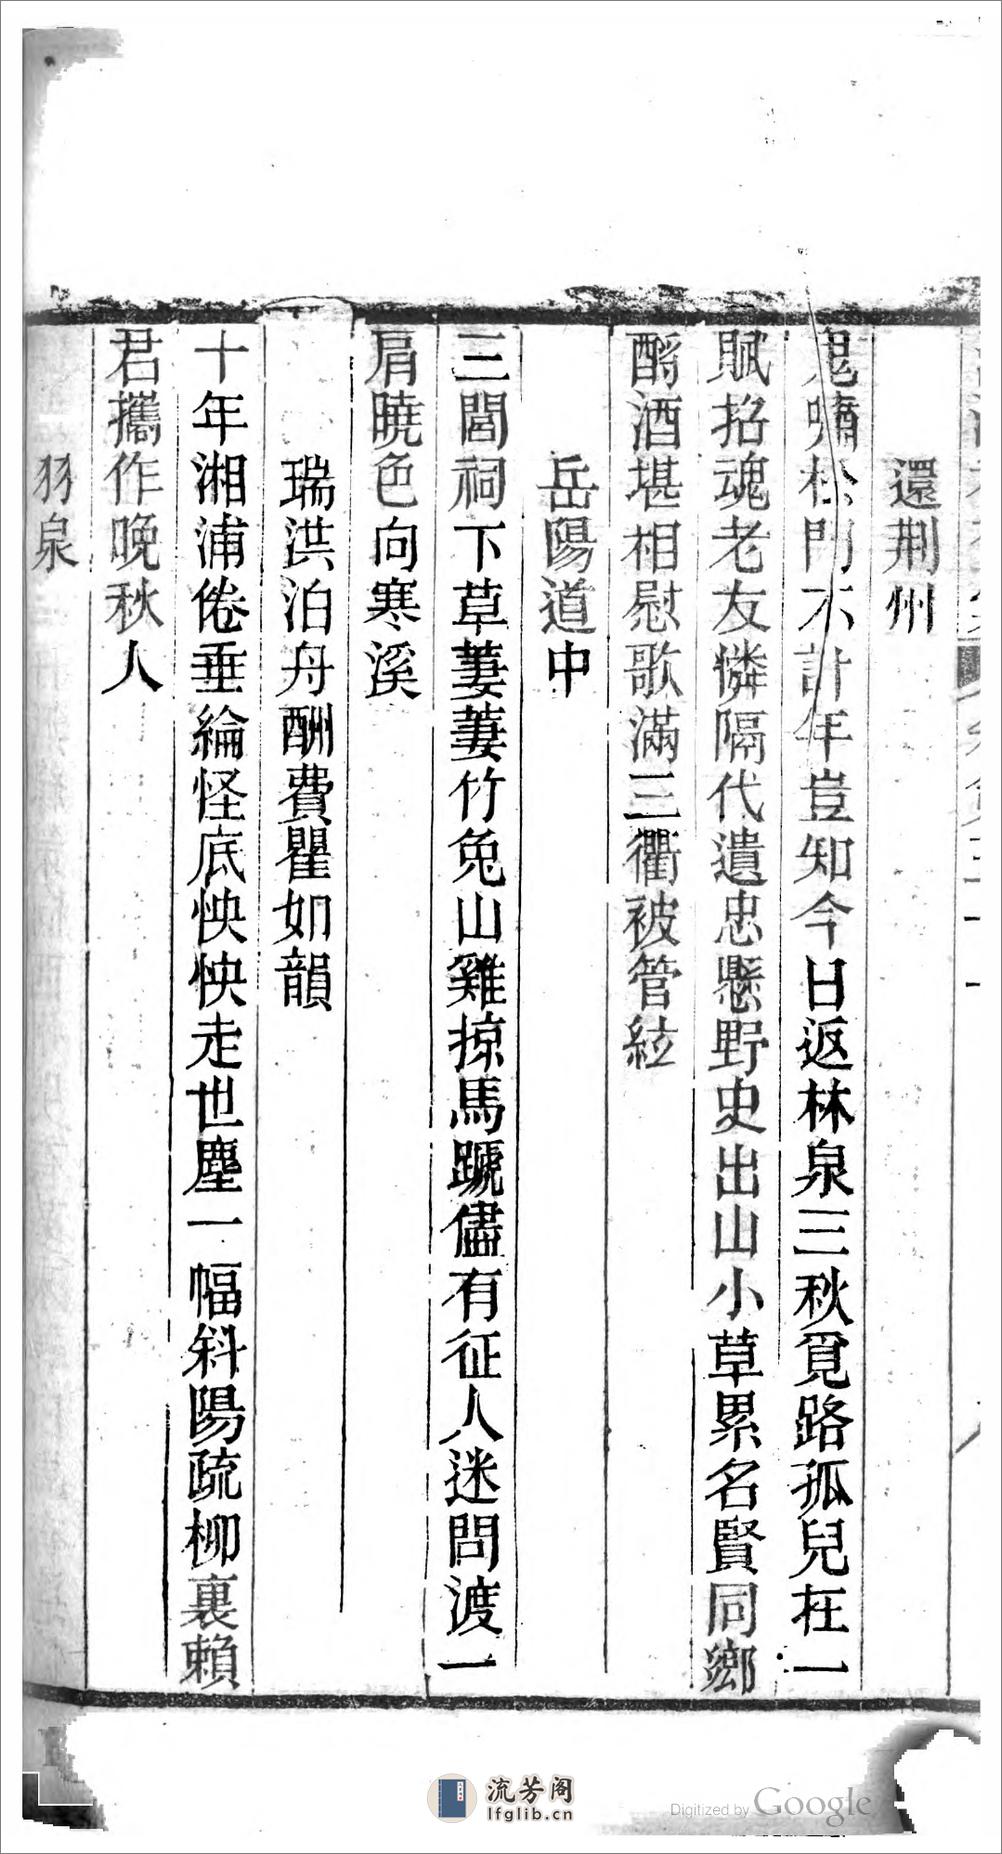 還荆州
鬼嘯松門不計年豈知今日返林泉三秋覓路孤兒在一
賦招魂老友憐隔代遺忠懸野史出山小草累名賢同鄉
酹酒堪相慰歌滿三衢被管絃
岳陽道中
三閭祠下草萋萋竹兔山雞掠馬蹏儘有征人迷問渡一
肩曉色向寒溪
瑞洪泊舟酬費瞿如韻
十年湘浦倦垂綸怪底怏怏走世塵一幅斜陽疏柳裏賴
君攜作晚秋人
羽泉
流芳阁
lfglib.cn
Digitized by Google